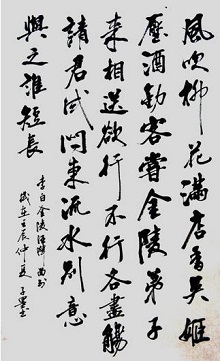 風吹柳花滿店香吴姬
壓酒勸客嘗金陵弟子
来相送欲行不行各盡觴
請君試問東流水别意
與之誰短長
李白金陵酒肆
歲在壬辰仲夏子墨